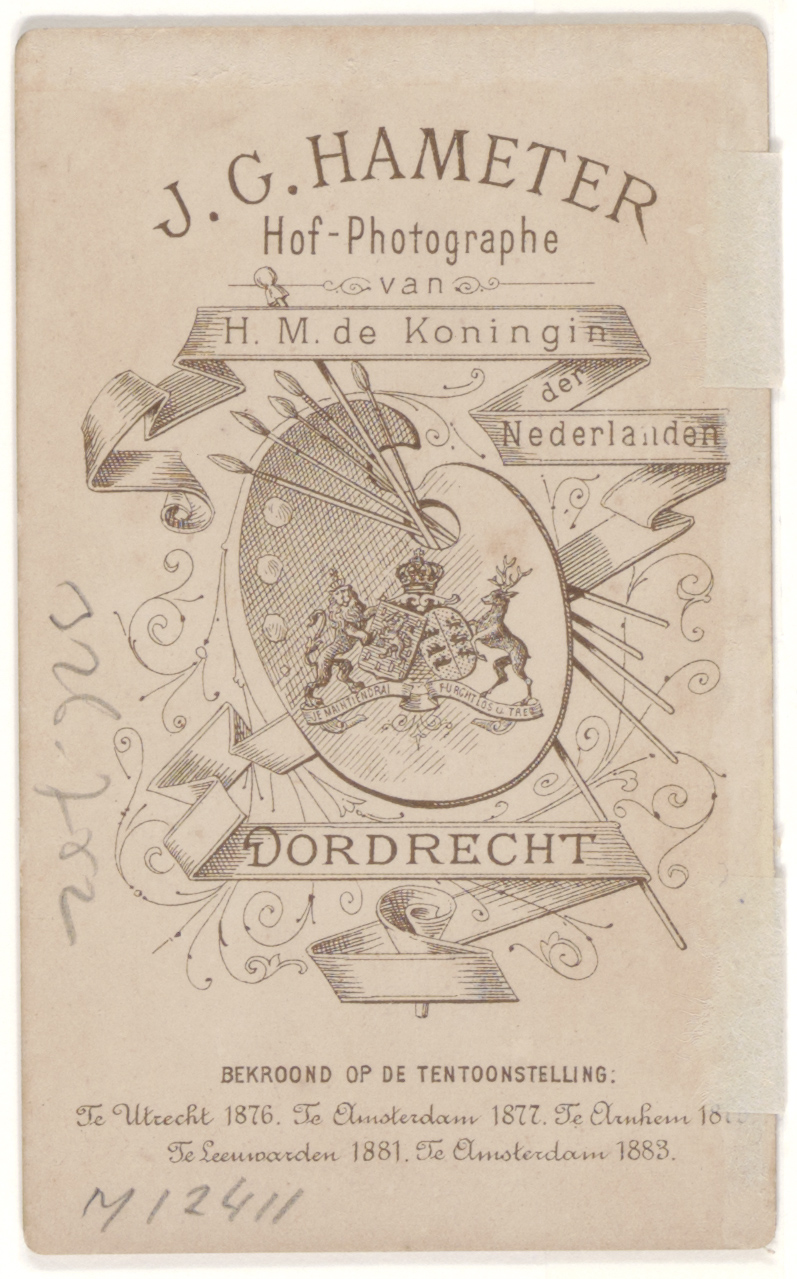 J. G. HAMETER
Hof-Photographe
van
H. M. de Koningin
der
Nederlanden
JE MAINTIENDRAI
DORDRECHT
BEKROOND OP DE TENTOONSTELLING:
Te Utrecht 1876. Te Amsterdam 1877. Te Arnhem
Te Leeuwarden 1881. Te Amsterdam 1883.
M 12411